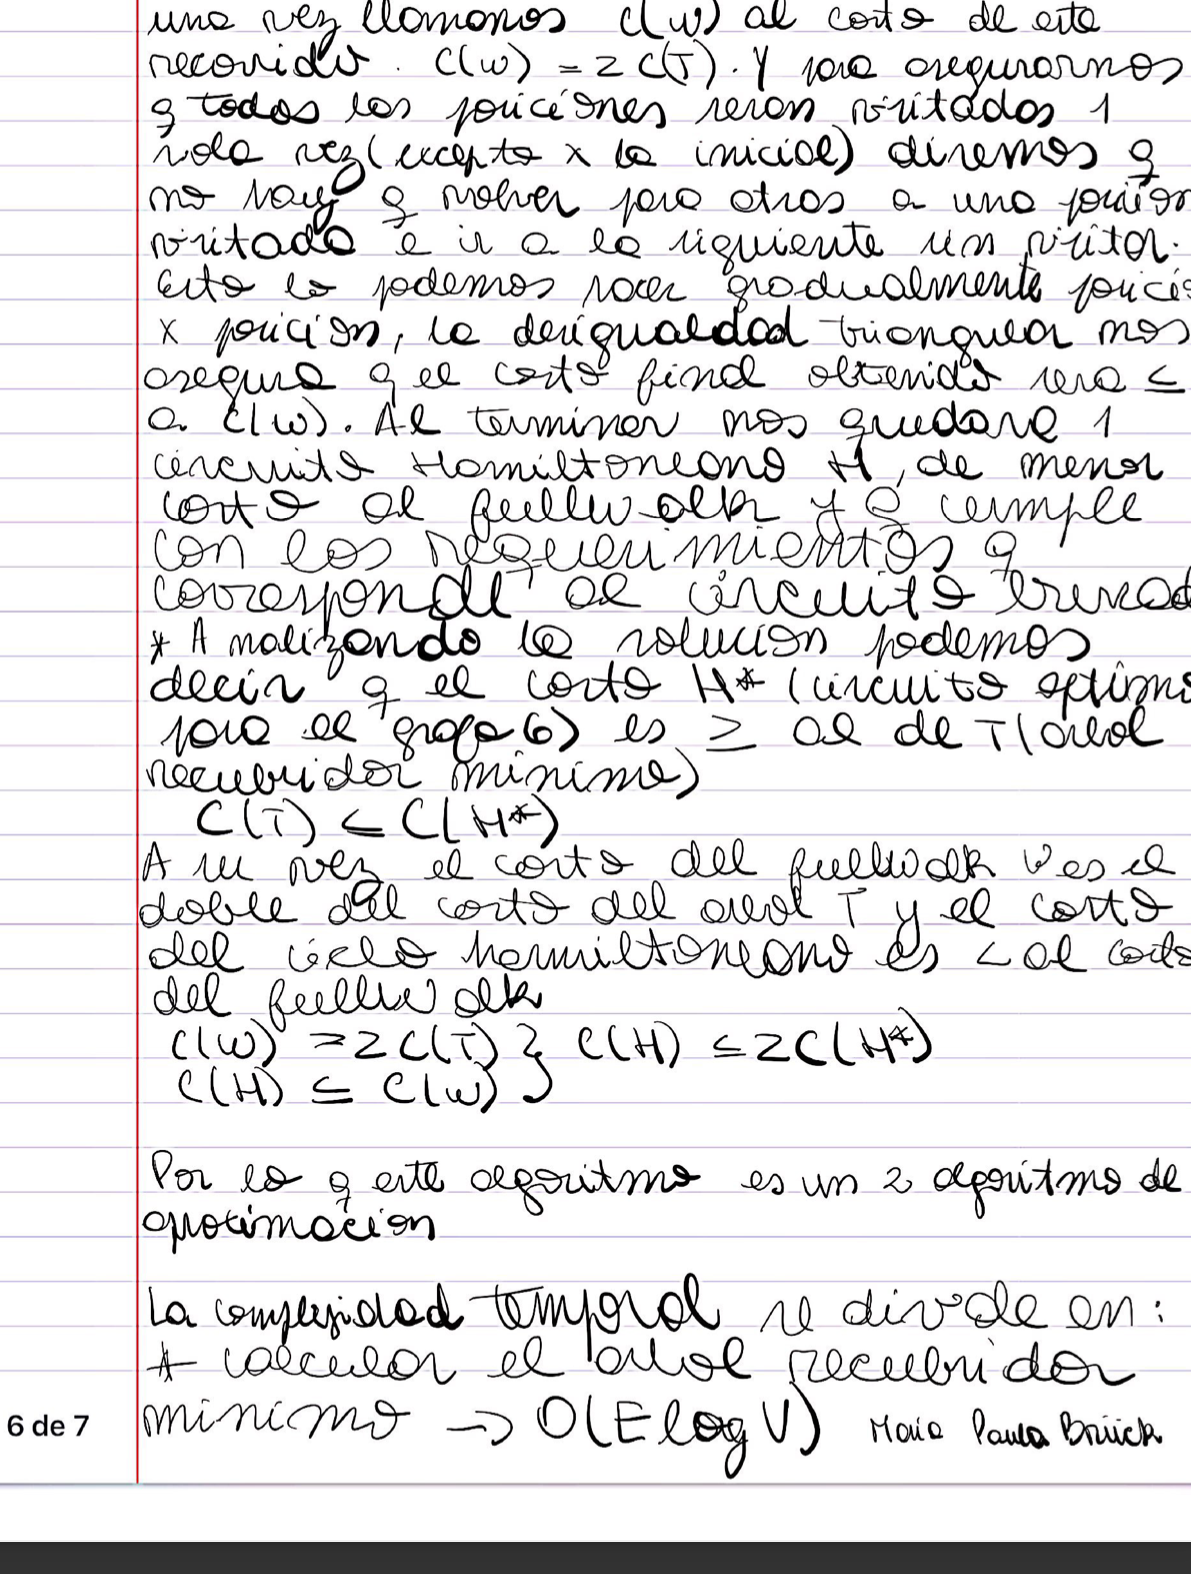 una vez llamamos c(w) al costo de este
recorrido. C(w) = 2 C(T). Y para asegurarnos
q todas las posiciones sean visitados 1
sola vez (excepto x la inicial) diremos q
no hay q volver para atras a una posición
visitada e ir a la siguiente sin visitar.
Esto lo podemos hacer gradualmente posició
x posición, la desigualdad triangular nos
asegura q el costo final obtenido sera ≤
a C(w). Al terminar nos quedara 1
circuito Hamiltoneano H, de menor
costo al fullwalk y q cumple
con los requerimientos q
corresponde al circuito buscad
* Analizando la solución podemos
decir q el costo H* (circuito optimo
para el grafo G) es ≥ al de T (arbol
recubridor minimo)
C(T) ≤ C(H*)
A su vez el costo del fullwalk W es el
doble del costo del arbol T y el costo
del ciclo hamiltoneano es < al costo
del fullwalk
C(w) = 2 C(T) } C(H) ≤ 2 C(H*)
C(H) ≤ C(w)
Por lo q este algoritmo es un 2 algoritmo de
aproximacion
La complejidad temporal se divide en:
* calcular el arbol recubridor
minimo → O(E log V) Maria Paula Bruck
6 de 7